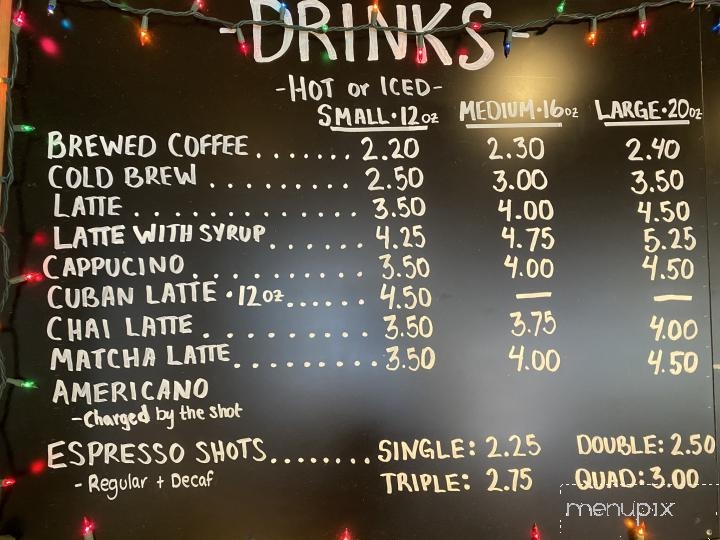 -DRINKS-
-HOT or ICED-
SMALL·12oz MEDIUM·16oz LARGE·20oz
BREWED COFFEE....... 2.20 2.30 2.40
COLD BREW ......... 2.50 3.00 3.50
LATTE ............ 3.50 4.00 4.50
LATTE WITH SYRUP...... 4.25 4.75 5.25
CAPPUCINO.......... 3.50 4.00 4.50
CUBAN LATTE ·12oz...... 4.50 — —
CHAI LATTE ......... 3.50 3.75 4.00
MATCHA LATTE......... 3.50 4.00 4.50
AMERICANO
-Charged by the shot
ESPRESSO SHOTS........ SINGLE: 2.25 DOUBLE: 2.50
- Regular + Decaf TRIPLE: 2.75 QUAD: 3.00
menupix